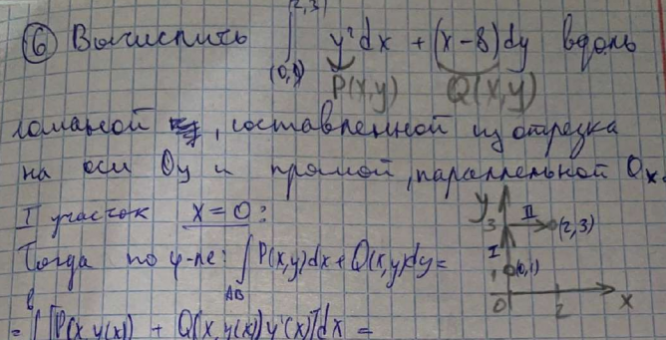 (2,3)
⑥ Вычислить ∫ y² dx + (x-8)dy вдоль
(0,1) P(x,y) Q(x,y)
ломаной, составленной из отрезка
на оси Oy и прямой, параллельной Ox.
I участок x=0:
y 3 II (2,3)
Тогда по ф-ле: ∫ P(x,y)dx + Q(x,y)dy =
I 1 (0,1)
AB
0 2 x
b
= ∫ [P(x,y(x)) + Q(x,y(x))y'(x)]dx =